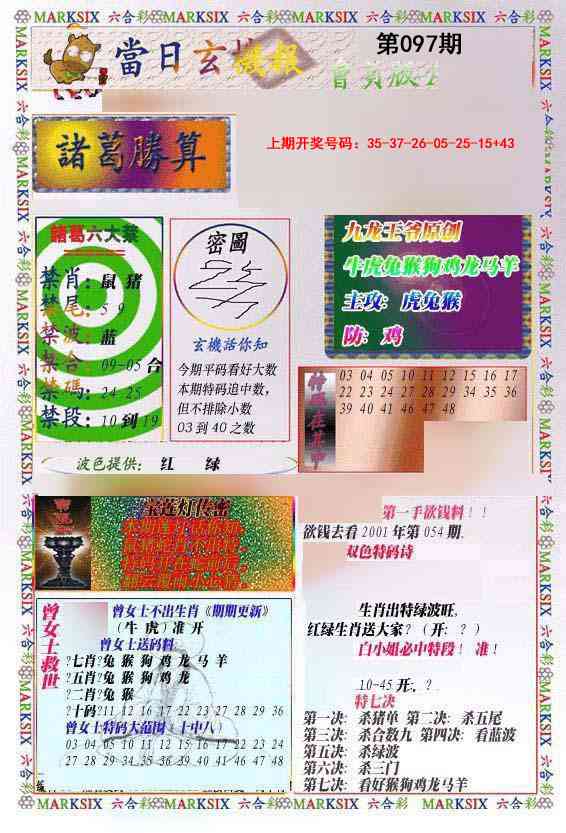 MARKSIX 六合彩 MARKSIX 六合彩 MARKSIX 六合彩 MARKSIX
當日玄机
機報
第097期
上期开奖号码：35-37-26-05-25-15+43
諸葛勝算
諸葛六大禁
禁肖：鼠 猪
禁尾：5 9
禁波：蓝
禁合：09-05 合
禁碼：24 25
禁段：10 到 19
密圖
玄機話你知
今期平码看好大数
本期特码追中数，
但不排除小数
03 到 40 之数
九龙王爷原创
牛虎兔猴狗鸡龙马羊
主攻：虎兔猴
防：鸡
特碼在其中
03 04 05 10 11 12 15 16 17
22 23 24 27 28 29 34 35 36
39 40 41 46 47 48
波色提供： 红 绿
宝莲灯传密
第一手欲钱料！！
欲钱去看 2001 年第 054 期.
双色特码诗
生肖出特绿波旺，
红绿生肖送大家？（开：？）
白小姐必中特段！ 准！
10-45 开. ？
特七决
第一决：杀猪单 第二决：杀五尾
第三决：杀合数九 第四决：看蓝波
第五决：杀绿波
第六决：杀三门
第七决：看好猴狗鸡龙马羊
曾女士救世
曾女士不出生肖《期期更新》
（牛 虎）准 开
曾女士送码料
?七肖?兔 猴 狗 鸡 龙 马 羊
?五肖?兔 猴 狗 鸡 龙
?二肖?兔 猴
?十码?11 12 16 17 22 23 27 28 29 36
曾女士特码大范围（十中八）
03 04 05 10 11 12 15 16 17 22 23 24
27 28 29 34 35 36 39 40 41 46 47 48
MARKSIX 六合彩 MARKSIX 六合彩 MARKSIX 六合彩 MARKSIX